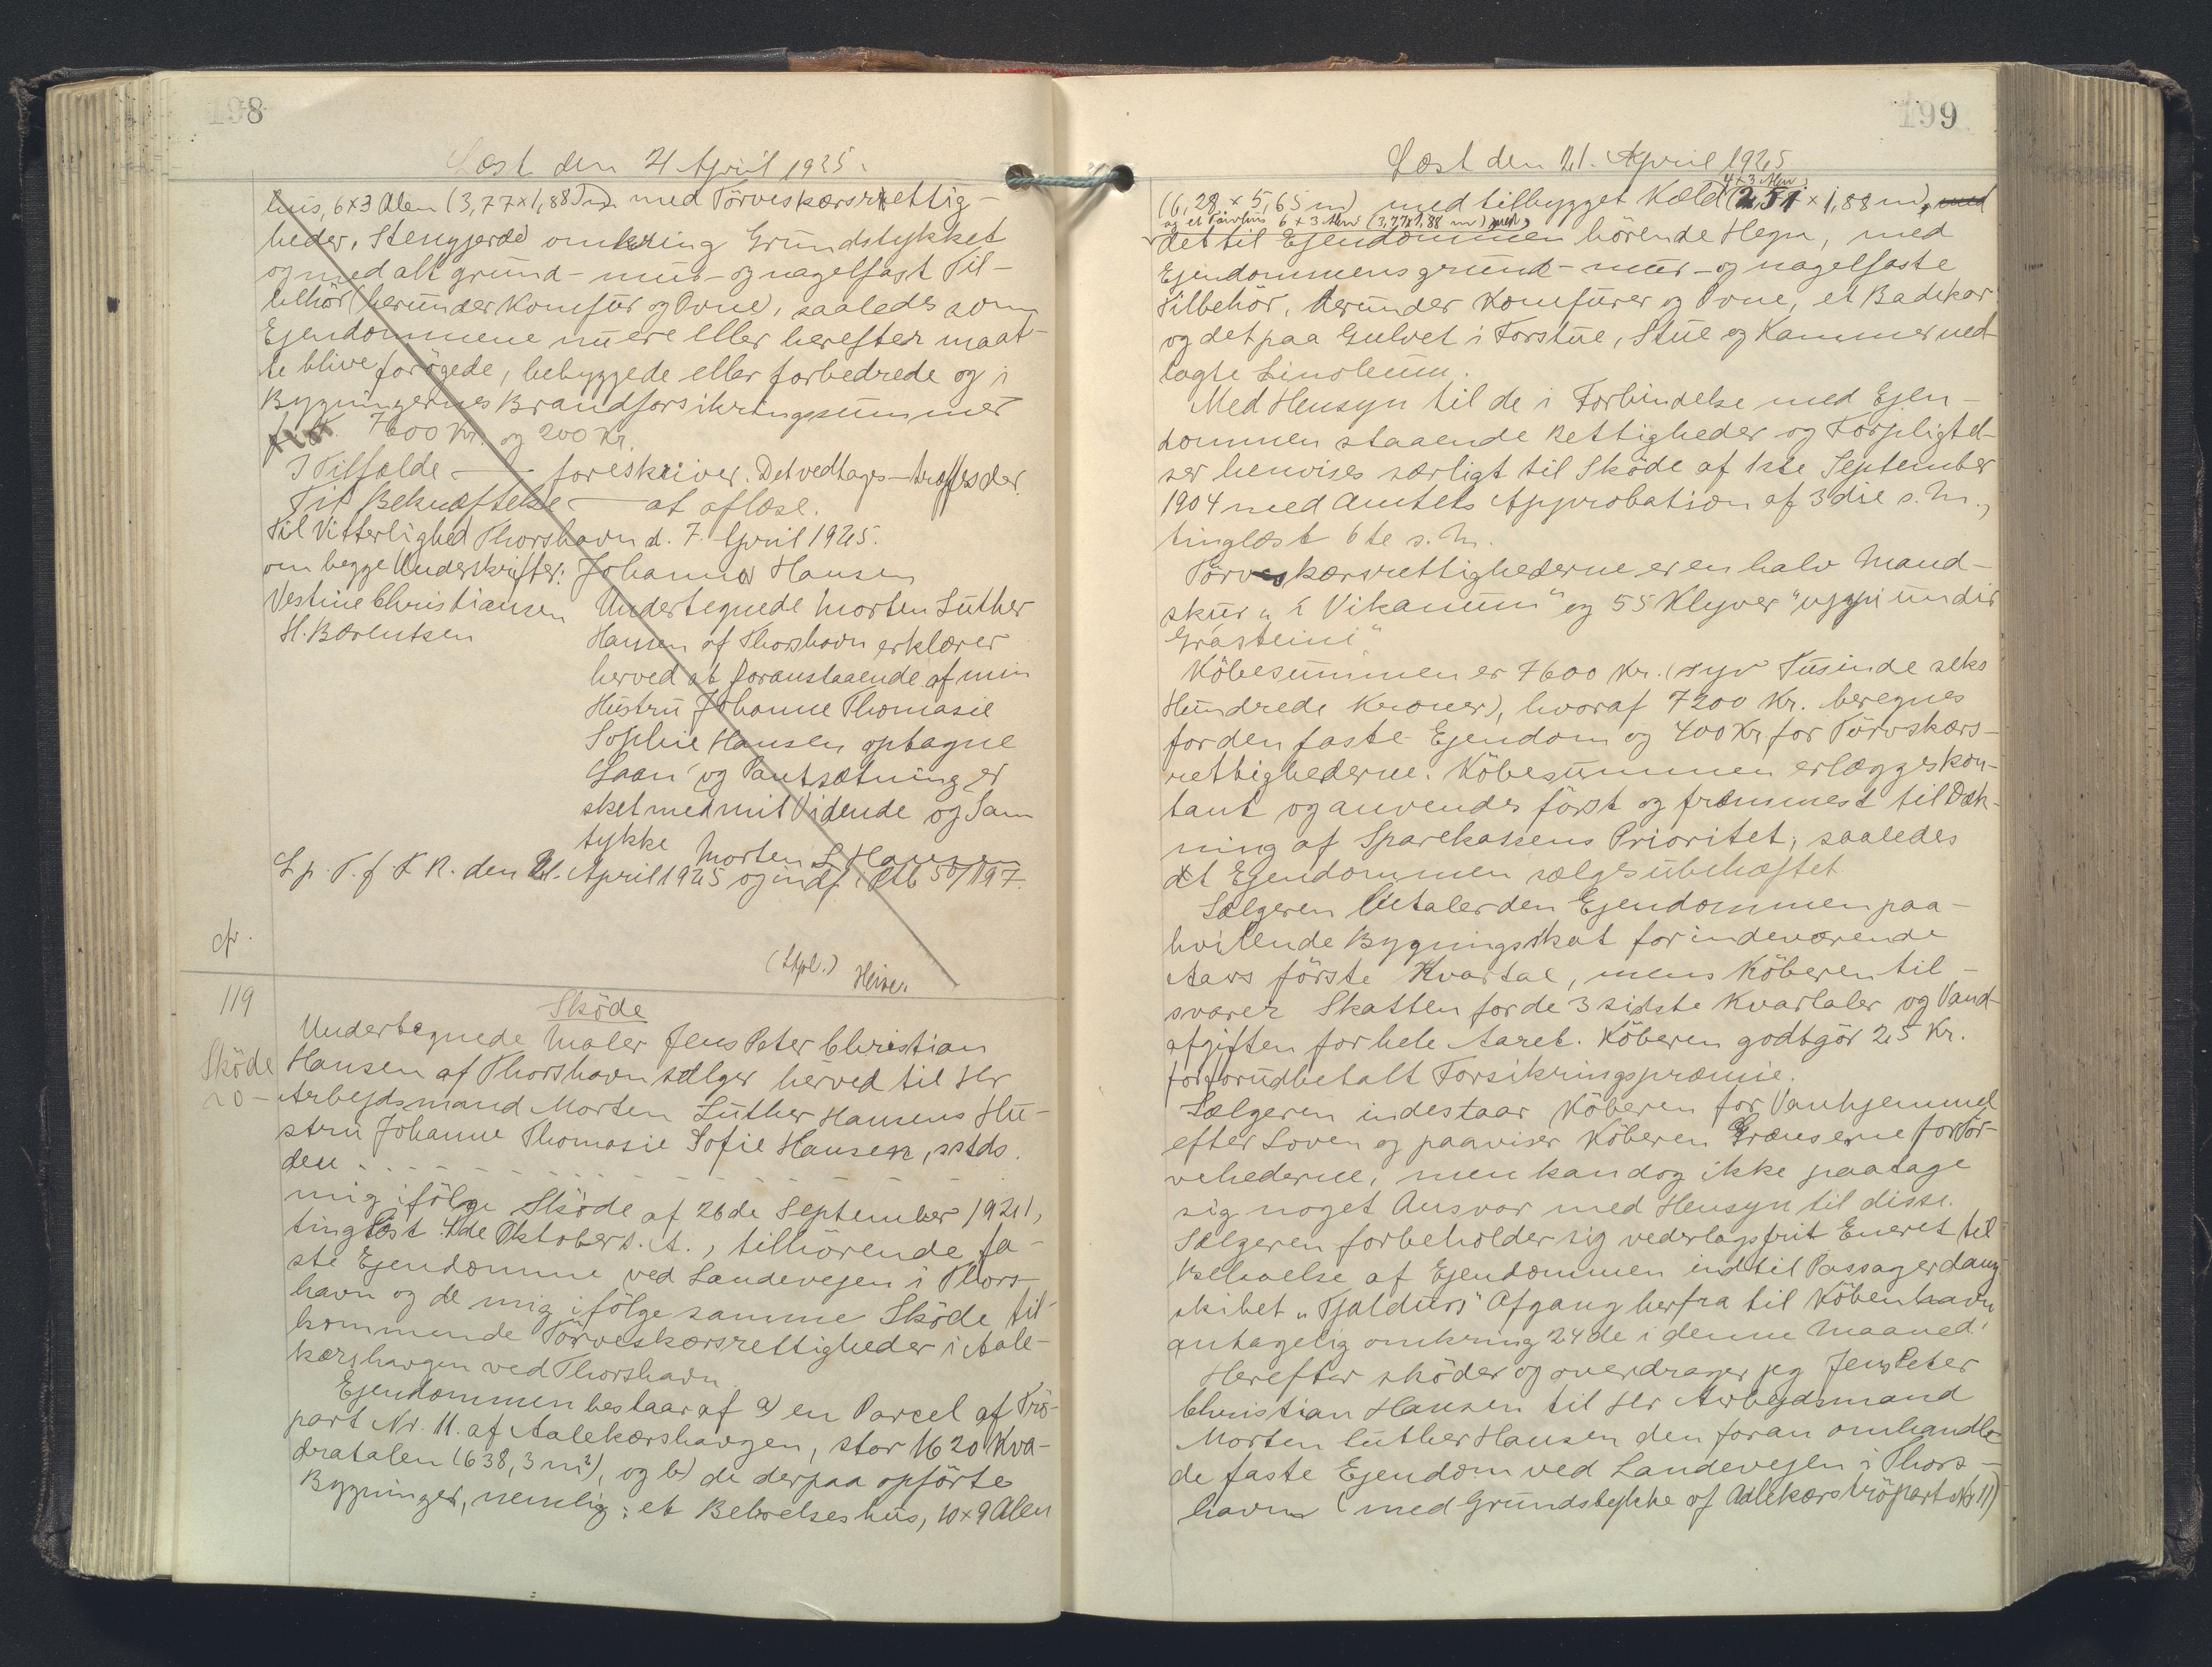 198
Læst den 21 April 1925.
hus, 6x3 Alen (3,77x1,88 m) med Törveskærsrettig-
heder, Stengjerde omkring Grundstykket
og med alt grund- mur- og nagelfast Til-
behör (herunder Komfur og Ovne), saaledes som
Ejendommene nu ere eller herefter maat-
te blive forögede, bebyggede eller forbedrede og i
Bygningernes Brandforsikringssummer
7600 Kr. og 200 Kr.
I Tilfælde — foreskriver. Det vedtages — træffes der.
Til Bekræftelse — at aflæse.
Til Vitterlighed Thorshavn d. 7. April 1925.
om begge Underskrifter: Johanna Hansen
Vestine Christiansen Undertegnede Morten Luther
H. Bærentsen Hansen af Thorshavn erklærer
herved at foranstaaende af min
Hustru Johanne Thomasie
Sophie Hansen optagne
Laan og Pantsætning er
sket med mit Vidende og Sam
tykke Morten L Hansen
L p. T. f. F. R. den 21. April 1925 og indf. i Ptb 50/197.
cfr.
(Stpl.) Heisen
119
Sköde
Undertegnede Maler Jens Peter Christian
Sköde Hansen af Thorshavn sælger herved til Hr
20 — Arbejdsmand Morten Luther Hansens Hu-
stru Johanne Thomasie Sofie Hansen, sstds.
den . . . . . . . . . . . .
mig ifölge Sköde af 26de September 1921,
tinglæst 4de Oktober s. A., tilhörende fa-
ste Ejendomme ved Landevejen i Thors-
havn og de mig ifölge samme Sköde til-
kommende Törveskærsrettigheder i Aale-
kærshaugen ved Thorshavn
Ejendommen bestaar af a) en Parcel af Trö-
part Nr. 11. af Aalekærshaugen, stor 1620 Kva-
dratalen (638,3 m²), og b) de derpaa opförte
Bygninger, nemlig: et Beboelseshus, 10x9 Alen
199
Læst den 21. April 1925
4x3 Alen
(6,28 x 5,65 m) med tilbygget Kæld (2,51 x 1,88 m), med
og et Törvhus 6x3 Alen (3,77x1,88 m) med,
det til Ejendommen hörende Hegn, med
Ejendommens grund- mur- og nagelfaste
Tilbehör, herunder Komfurer og Ovne, et Badekar
og det paa Gulvet i Forstue, Stue og Kammer ned-
lagte Linoleum.
Med Hensyn til de i Forbindelse med Ejen-
dommen staaende Rettigheder og Forpligtel-
ser henvises særligt til Sköde af 1ste September
1904 med Amtets Approbation af 3die s. M.,
tinglæst 6te s. M.
Törveskærsrettighederne er en halv Mand-
skur „í Vikanum" og 55 Klyver "uppi undir
Grásteini"
Köbesummen er 7600 Kr. (syv Tusinde seks
Hundrede Kroner), hvoraf 7200 Kr. beregnes
for den faste Ejendom og 400 Kr. for Törvskærs-
rettighederne. Köbesummen erlægges kon-
tant og anvendes först og fremmest til Dæk-
ning af Sparekassens Prioritet, saaledes
at Ejendommen sælges ubehæftet
Sælgeren betaler den Ejendommen paa-
hvilende Bygningsskat for indeværende
Aars förste Kvartal, mens Köberen til-
svarer Skatten for de 3 sidste Kvartaler og Vand-
afgiften for hele Aaret. Köberen godtgör 25 Kr.
for forudbetalt Forsikringspræmie.
Sælgeren indestaar Köberen for Vanhjemmel
efter Loven og paaviser Köberen Grænserne for Tör-
vehederne, men kan dog ikke paatage
sig noget Ansvar med Hensyn til disse.
Sælgeren forbeholder sig vederlagsfrit Eneret til
Beboelse af Ejendommen indtil Passagerdamp-
skibet „Tjaldurs" Afgang herfra til Köbenhavn
antagelig omkring 24de i denne Maaned.
Herefter sköder og overdrager jeg Jens Peter
Christian Hansen til Hr Arbejdsmand
Morten Luther Hansen den foran omhandle-
de faste Ejendom ved Landevejen i Thors-
havn (med Grundstykke af Aalekærs tröpart Nr 11)